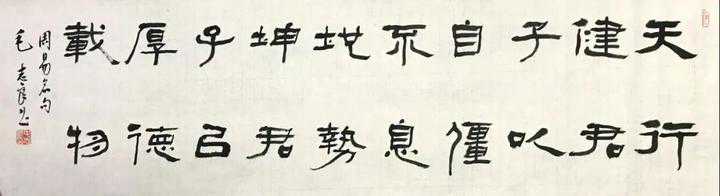 天行
健君
子以
自彊
不息
地勢
坤君
子以
厚德
載物
周易名句
毛志